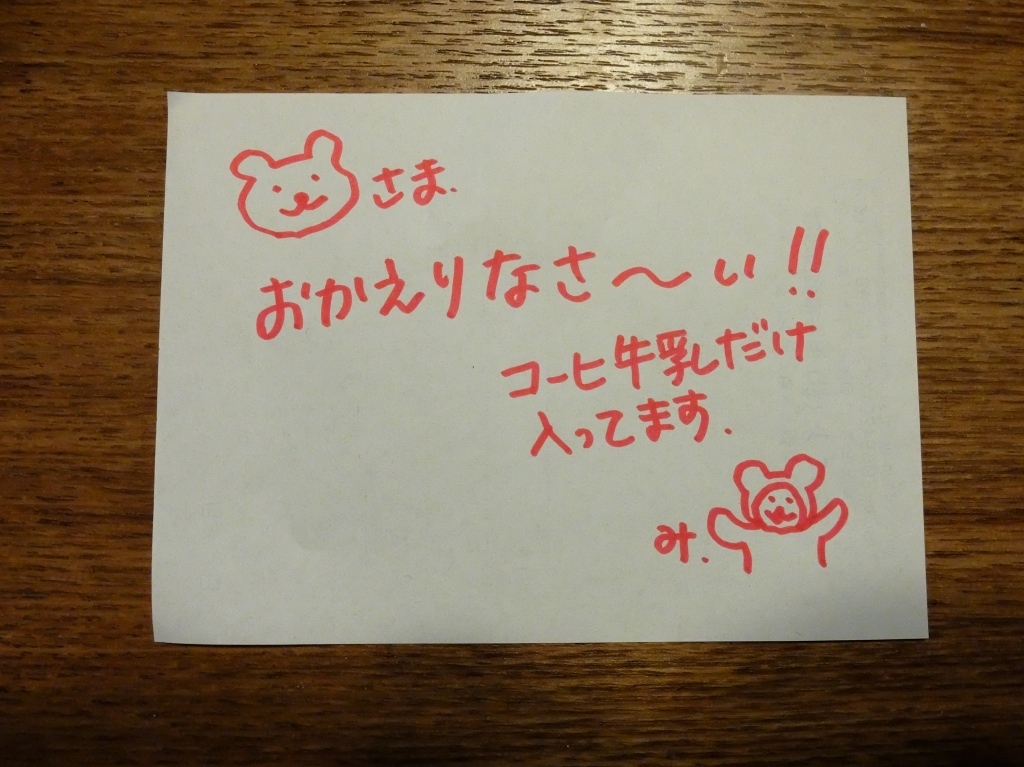 さま.
おかえりなさ〜い!!
コーヒ牛乳だけ
入ってます.
み.